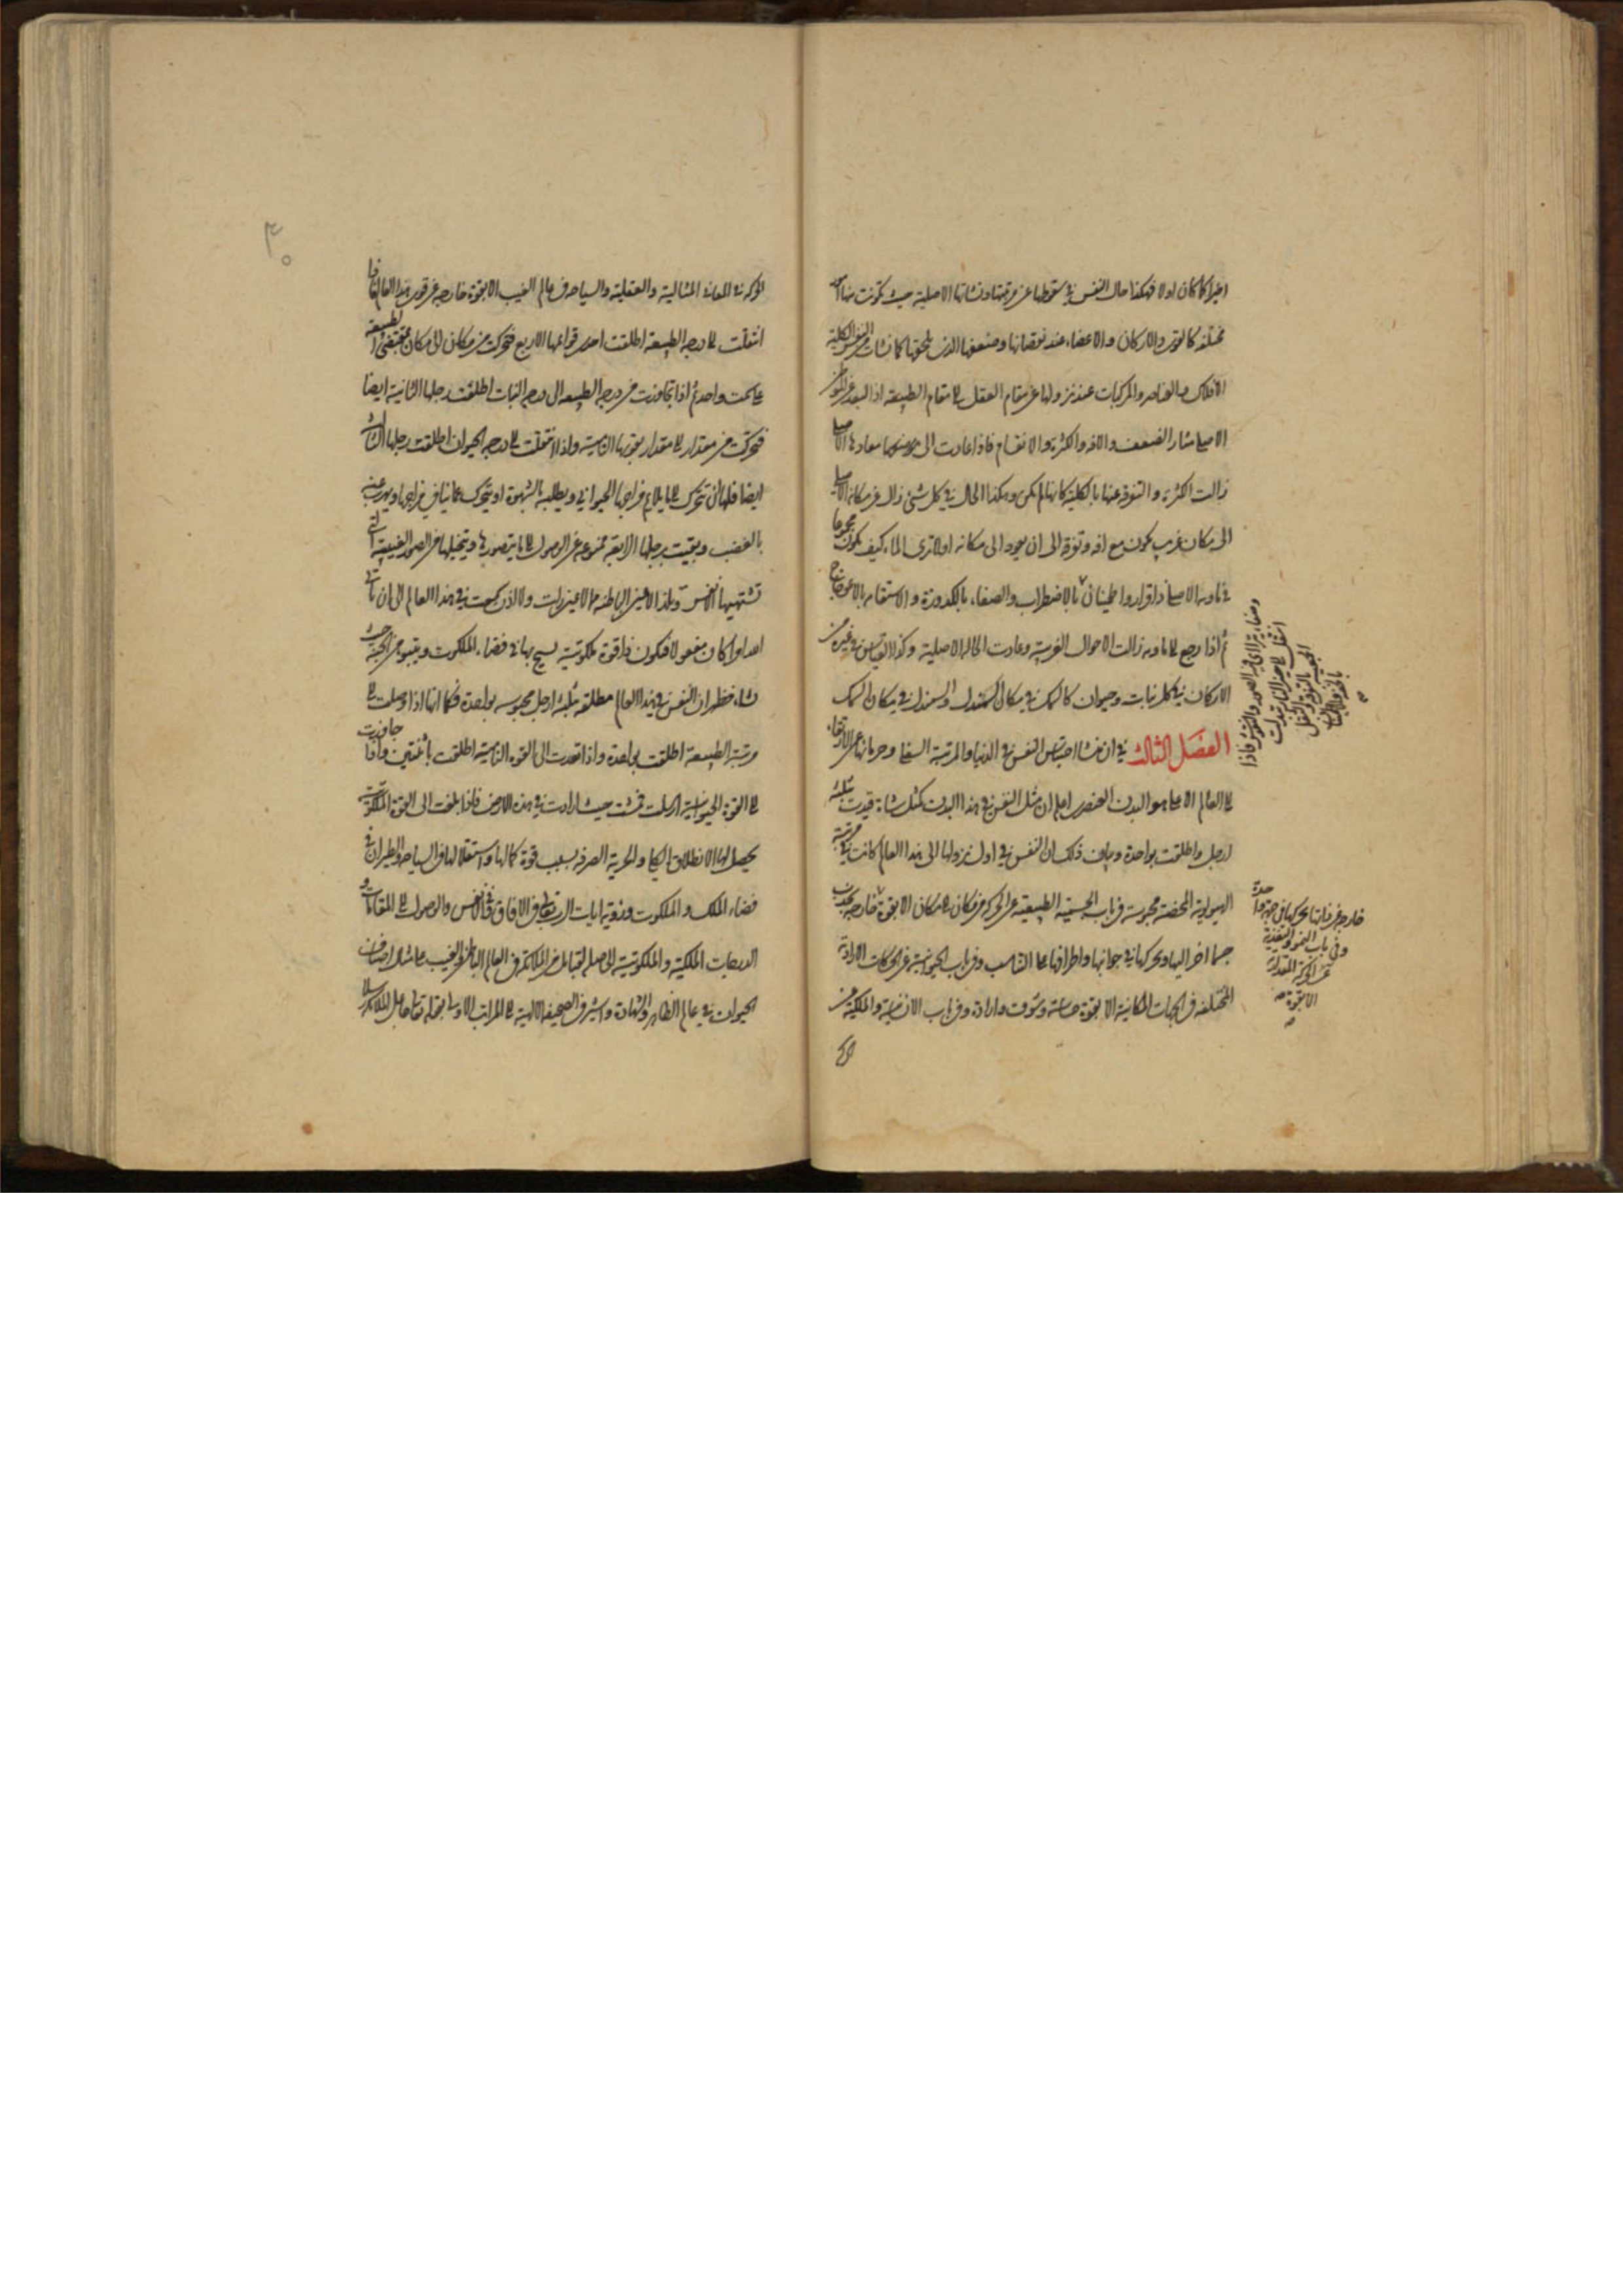 اخيرا كما كان اولا فهكذا حال النفس في سقوطها عن مرتبتها ونشاتها الاصلية حيث تكونت منها
مختلفة كالقوى والاركان والاعضاء عند نقصانها وضعفها الذي لحقها كما نشات من النفس الكلية
الافلاك والعناصر والمركبات عند نزولها عن مقام العقل الى مقام الطبيعة اذ البعد عن
الاصلى مثار الضعف والافة والكثرة والانقسام فاذا عادت الى موضعها ومعادها الاصلى
زالت الكثرة والتفرقة عنها بالكلية كانها لم تكن وهكذا الحال في كل شئ زال عن مكانه الاصلى
الى مكان غريب يكون مع افة وتفرقة الى ان يعود الى مكانه اولا ترى الماء كيف يكون
في ماويه الاصلى ذا قرار واطمينان بالاضطراب والصفاء بالكدورة والاستقامة بالاعوجاج
ثم اذا رجع الى ماويه زالت الاحوال الغريبة وعادت الحالة الاصلية وكذا القياس في غيره من
الاركان في كل نبات وحيوان كالسمك في مكان السمندل والسمندل في مكان السمك
الفصل الثالث في ان منشا احتباس النفس في الدنيا والمرتبة السفلى وحرمانها عن الارتقاء
الى العالم الاعلى هو البدن العنصرى اعلم ان مثل النفس في هذا البدن كمثل شاة قيدت بثلثة
ارجل واطلقت بواحدة وبيان ذلك ان النفس في اول نزولها الى هذا العالم كانت في مرتبة
الهيولية المحضة محبوسة في باب الجسمية الطبيعية عن الحركة من مكان الى مكان الا بقوة خارجة
جسما اخر اليها وتحركها في جوانبها واطرافها على التناسب وفي باب الحيوانية عن الحركات الارادية
المختلفة في الجهات المكانية الا بقوة حساسة وشوق وارادة وفي باب الانسانية والملكية عن
وصفاء يتراءى فيه الصور والنقوش فاذا
انتقل الى حيز النار تبدلت
خارجة عن ذاتها تحركها في جهة واحدة
وفي باب النمو والتغذية
عن الحركة المقدارية
الا بقوة
الحركة في المعاني المثالية والعقلية والسياحة في عالم الغيب الا بقوة خارجة عن قوى هذا العالم فاذا
انتقلت الى درجة الطبيعة اطلقت احدى قوائمها الاربع فتحركت من مكان الى مكان بمقتضى الطبيعة
على سمت واحد ثم اذا تجاوزت من درجة الطبيعة الى درجة النبات اطلقت رجلها الثانية ايضا
فتحركت من مقدار الى مقدار بقوتها النامية واذا انتقلت الى درجة الحيوان اطلقت رجلها الثالثة
ايضا فلها ان تتحرك الى ما يلايم مزاجها الحيواني ويطلبه بالشهوة او يتحرك عما ينافي مزاجها ويهرب عنه
بالغضب وبقيت رجلها الرابعة ممنوعة عن الوصول الى ما يتصورها ويتخيلها من الصور الغيبية التي
تشتهيها الانفس وتلذ الاعين الباطنة مما لا عين رات ولا اذن سمعت في هذا العالم الى ان ياتي
امر الله وكان مفعولا فيكون ذا قوة ملكوتية يسيح بها في فضاء الملكوت ويتبوء من الجنة حيث
شاء فظهر ان النفس في هذا العالم مطلقة بثلثة ارجل محبوسة بواحدة فكما انها اذا وصلت الى
مرتبة الطبيعة اطلقت بواحدة واذا تعدت الى القوة النامية اطلقت باثنتين واذا جاوزت
الى القوة الحيوانية ارسلت فمشت حيث ارادت في هذه الارض فاذا بلغت الى القوة الملكوتية
يحصل لها الانطلاق الكلى والحرية الصرفة بسبب قوة كمالها واستقلالها في السياحة والطيران في
فضاء الملك والملكوت ورؤية ايات الرب تعالى في الافاق وفي الانفس والوصول الى المقامات و
الدرجات الملكية والملكوتية الحاصلة لقبائل من الملائكة في العالم الباطن والغيب على مثال اصناف
الحيوان في عالم الظاهر والشهادة واشير في الصحيفة الالهية الى المراتب الاوسط بقوله تعالى جاعل الملائكة رسلا